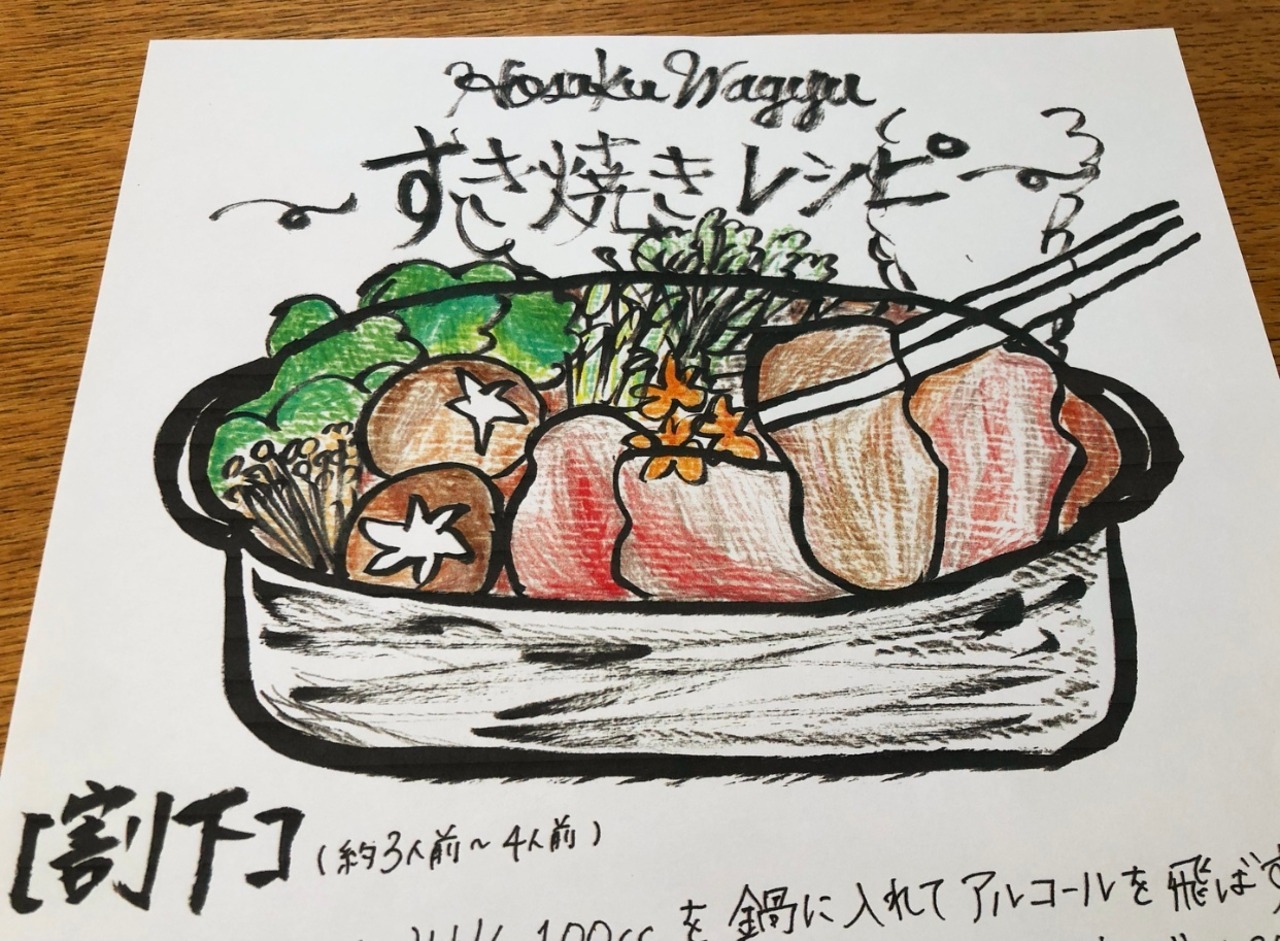 Hosaku Wagyu
すき焼きレシピ
[割下] (約3人前~4人前)
100cc を鍋に入れてアルコールを飛ばす